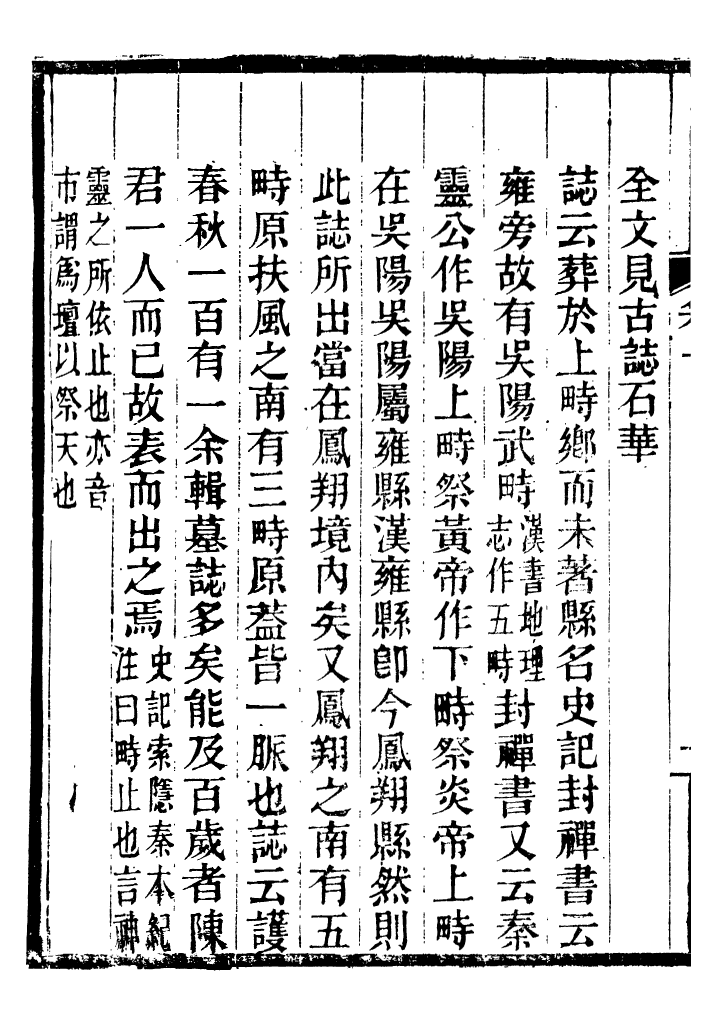 全文見古誌石華
誌云葬於上畤鄉而未著縣名史記封禪書云
雍旁故有吳陽武畤漢書地理志作五畤封禪書又云秦
靈公作吳陽上畤祭黃帝作下畤祭炎帝上畤
在吳陽吳陽屬雍縣漢雍縣卽今鳳翔縣然則
此誌所出當在鳳翔境內矣又鳳翔之南有五
畤原扶風之南有三畤原葢皆一脈也誌云護
春秋一百有一余輯墓誌多矣能及百歲者陳
君一人而已故表而出之焉史記索隱秦本紀注曰畤止也言神
靈之所依止也亦音
市謂爲壇以祭天也